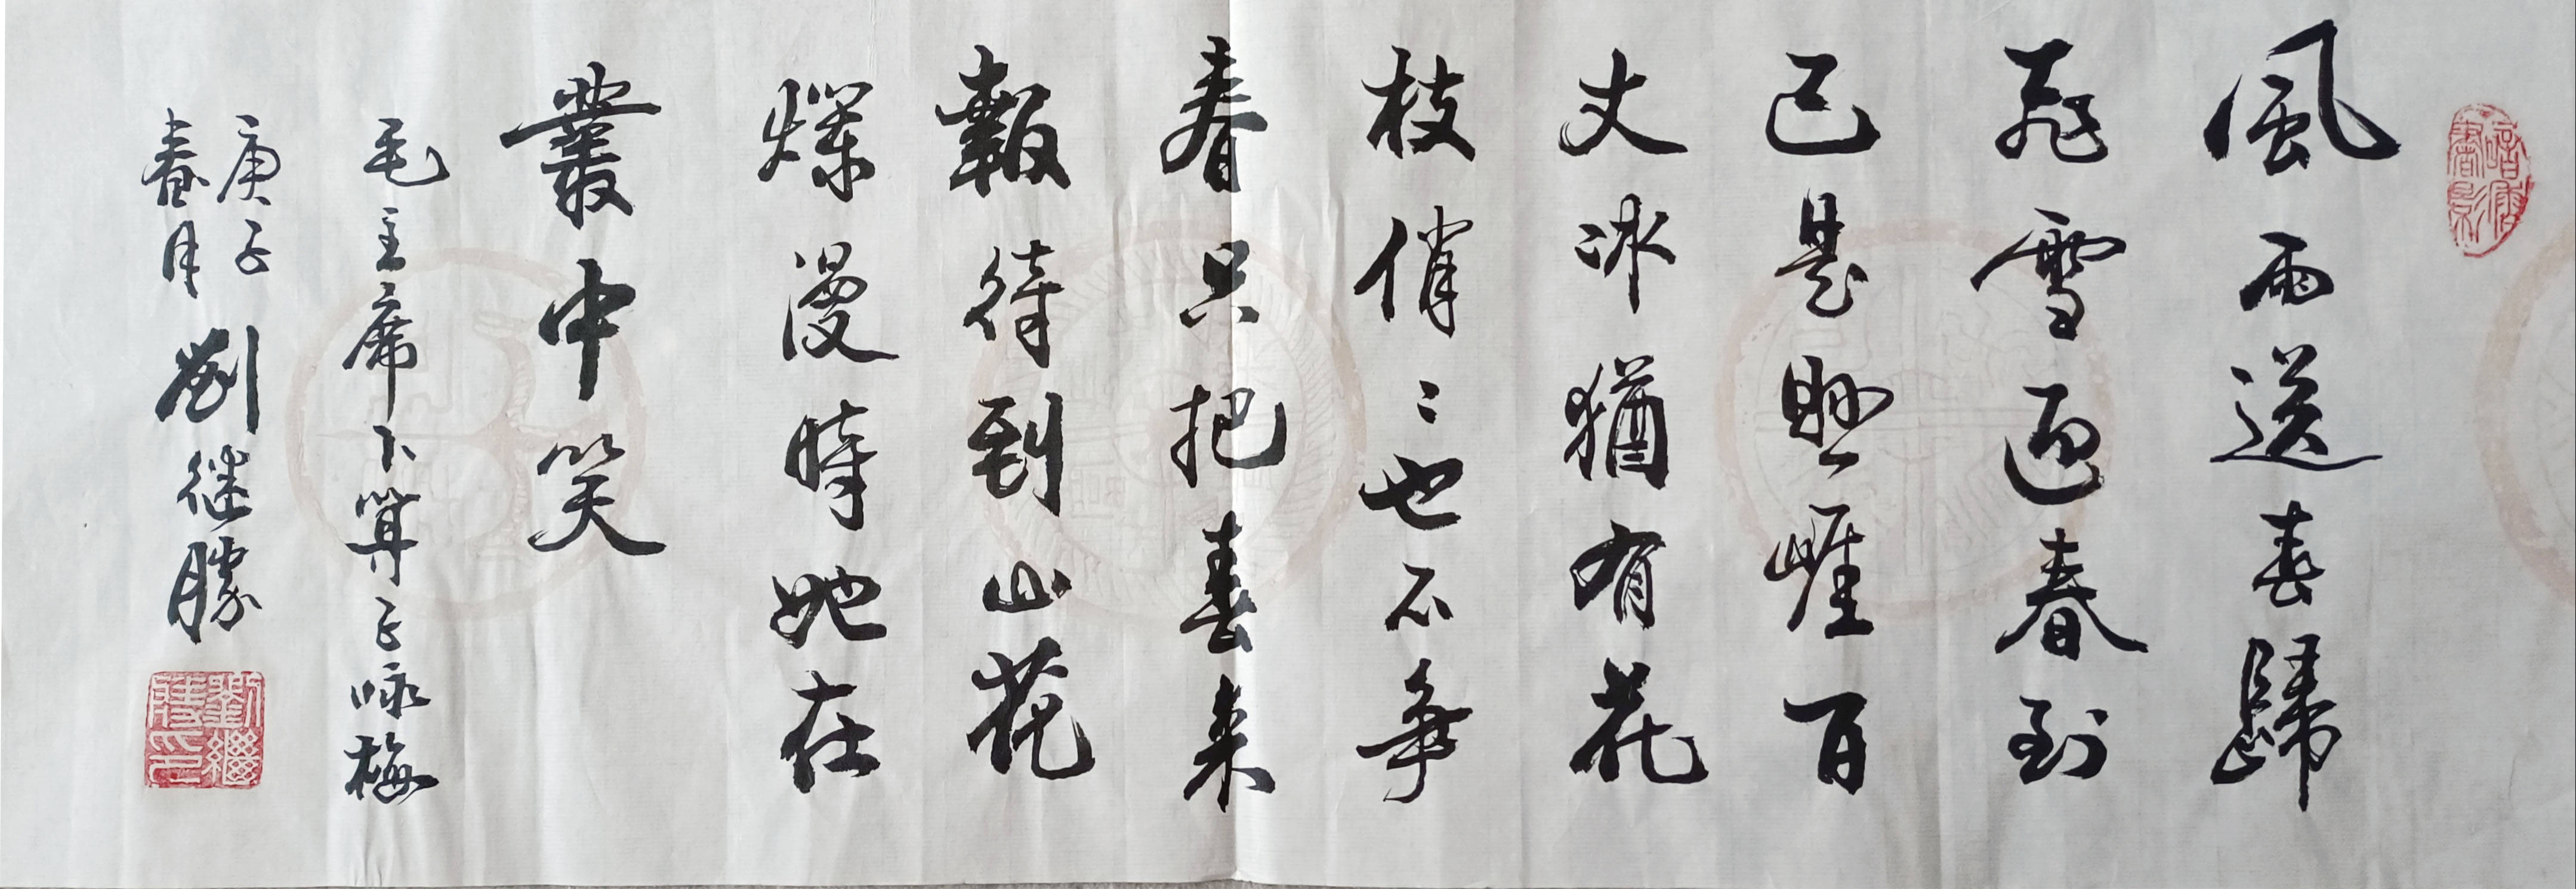 風雨送春歸
飛雪迎春到
已是懸崖百
丈冰猶有花
枝俏〻也不爭
春只把春来
報待到山花
爛漫時她在
叢中笑
毛主席卜算子咏梅
庚子
春月 劉继勝
劉繼勝印